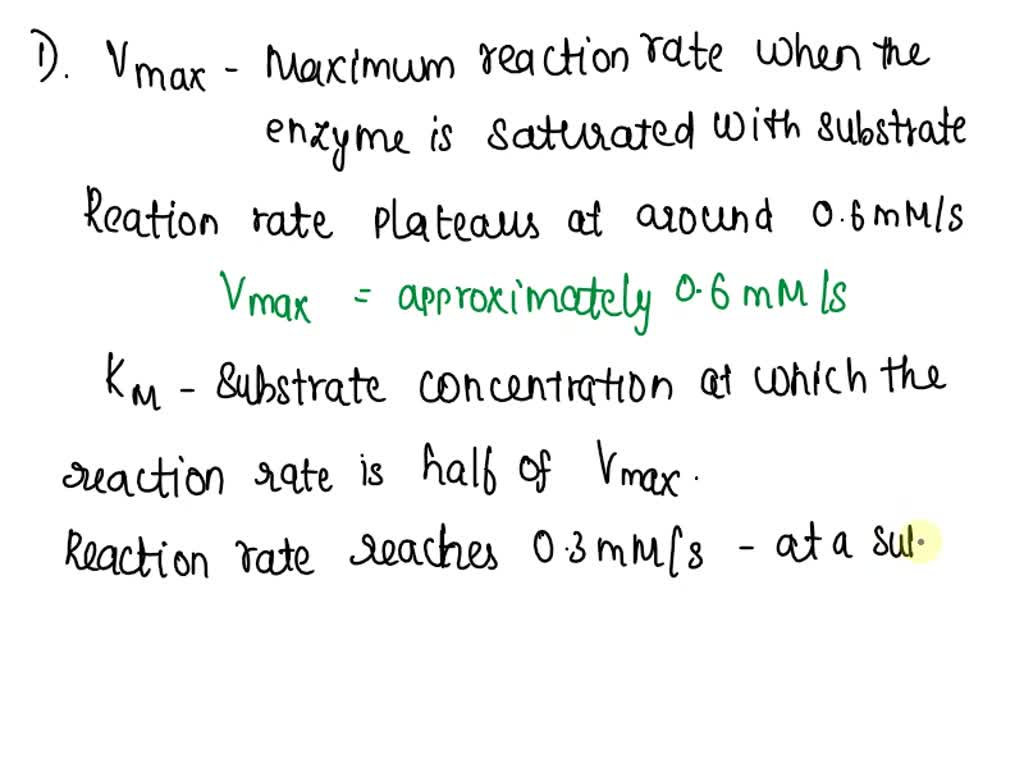 1). Vmax - Maximum reaction rate when the
enzyme is saturated with substrate
Reation rate plateaus at around 0.6 mM/s
Vmax = approximately 0.6 mM/s
KM - Substrate concentration at which the
reaction rate is half of Vmax.
Reaction rate reaches 0.3 mM/s - at a sub